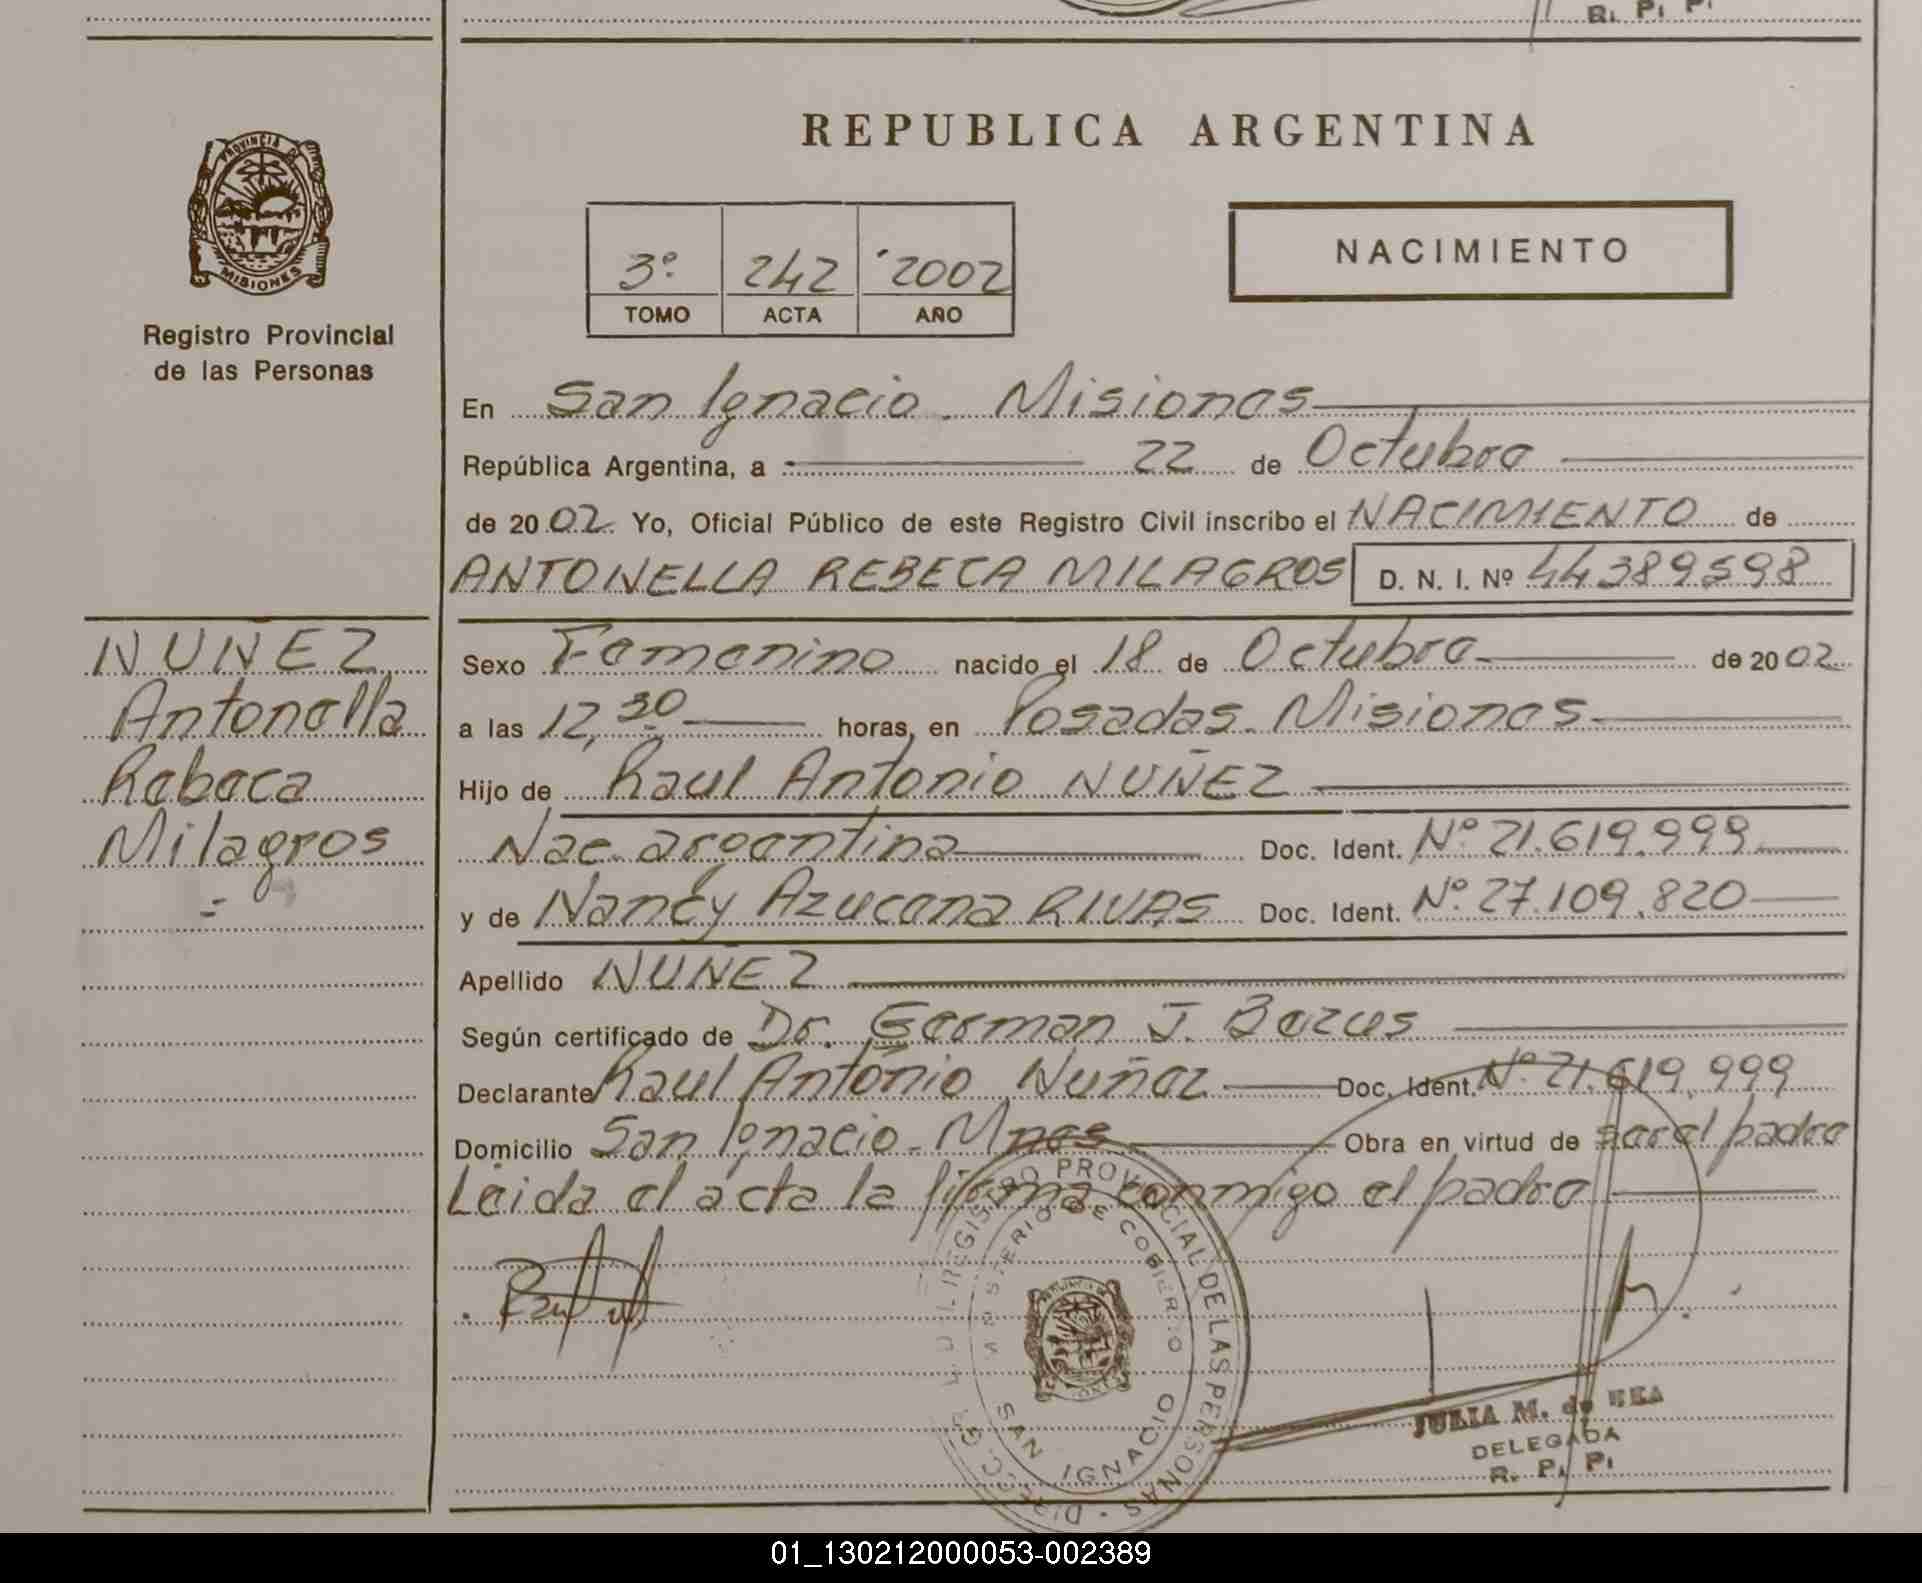 R. P. P.
PROVINCIA DE
MISIONES
Registro Provincial
de las Personas
REPUBLICA ARGENTINA
3º 242 2002
TOMO ACTA AÑO
NACIMIENTO
En San Ignacio. Misiones
República Argentina, a 22 de Octubre
de 20 02 Yo, Oficial Público de este Registro Civil inscribo el NACIMIENTO de
ANTONELLA REBECA MILAGROS D. N. I. Nº 44389598
NUÑEZ
Antonella
Rebeca
Milagros
Sexo Femenino nacido el 18 de Octubre de 20 02
a las 12,30 horas, en Posadas. Misiones
Hijo de Raul Antonio NUÑEZ
Nac. argentina Doc. Ident. Nº 21.619.999
y de Nancy Azucena RIVAS Doc. Ident. Nº 27.109.820
Apellido NUÑEZ
Según certificado de Dr. German J. Bazus
Declarante Raul Antonio Nuñez Doc. Ident. Nº 21.619.999
Domicilio San Ignacio - Mnes Obra en virtud de ser el padre
Leida el acta la firma conmigo el padre
REGISTRO PROVINCIAL DE LAS PERSONAS
MINISTERIO DE GOBIERNO
SAN IGNACIO
JULIA M. de REA
DELEGADA
R. P. P.
01_130212000053-002389